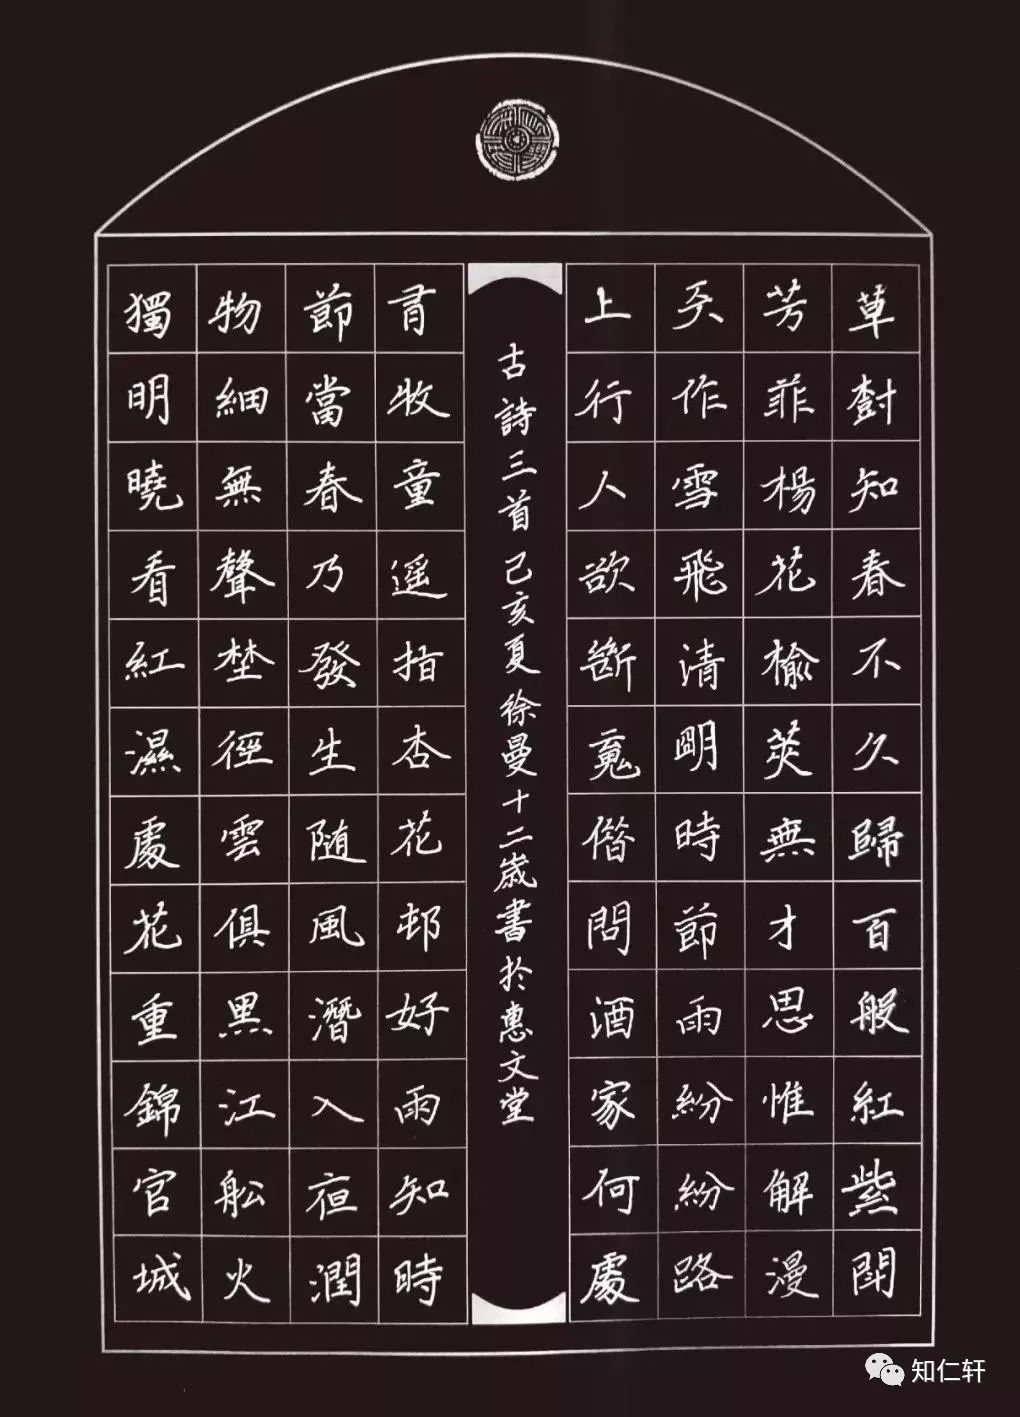 草樹知春不久歸百般紅紫閗
芳菲楊花榆莢無才思惟解漫
天作雪飛清明時節雨紛紛路
上行人欲斷魂借問酒家何處
古詩三首己亥夏徐曼十二歲書於惠文堂
有牧童遥指杏花邨好雨知時
節當春乃發生随風潛入夜潤
物細無聲埜徑雲俱黑江船火
獨明曉看紅濕處花重錦官城
知仁轩